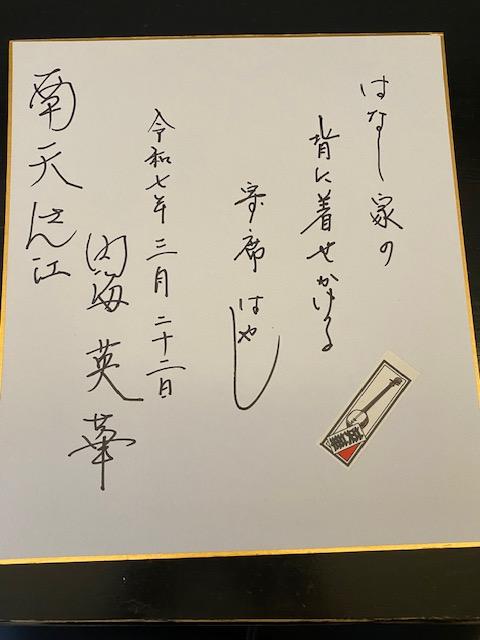 はなし家の
背に着せかける
寄席はやし
令和七年三月二十二日
内海英華
南天さん江